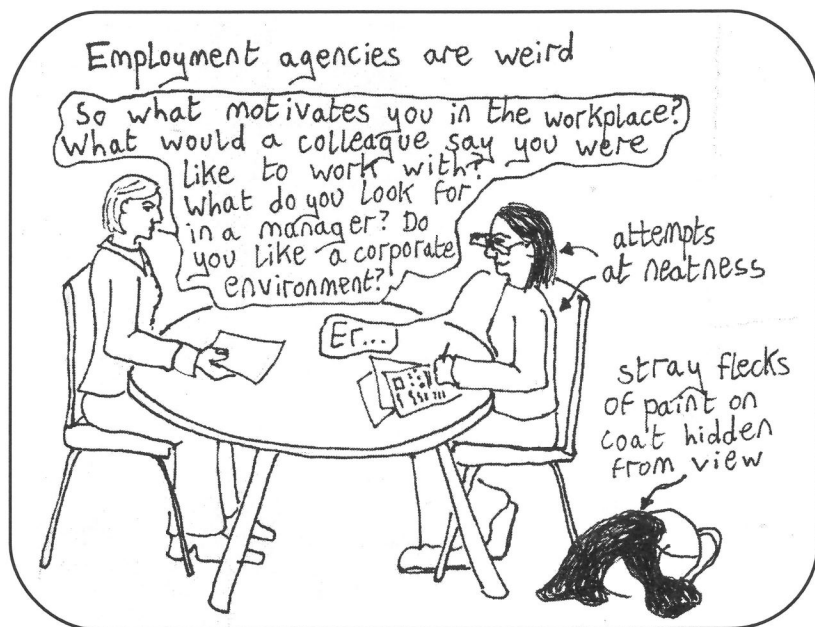 Employment agencies are weird
So what motivates you in the workplace?
What would a colleague say you were
like to work with?
What do you look for
in a manager? Do
you like a corporate
environment?
Er...
attempts
at neatness
stray flecks
of paint on
coat hidden
from view